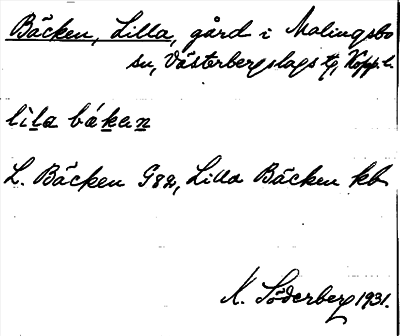 Bäcken, Lilla, gård i Malingsbo
sn, Västerbergslags tg, Kopp. l.
lila bákan
L. Bäcken G82, Lilla Bäcken kb
K. Söderberg 1931.